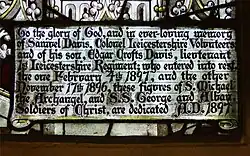 To the glory of God, and in ever-loving memory
of Samuel Davis, Colonel Leicestershire Volunteers
and of his son, Edgar Crofts Davis, Lieutenant
Leicestershire Regiment; who entered into rest,
the one February 4th 1897, and the other
November 17th 1896, these figures of S. Michael
the Archangel, and S.S. George and Alban,
Soldiers of Christ, are dedicated A.D. 1897.